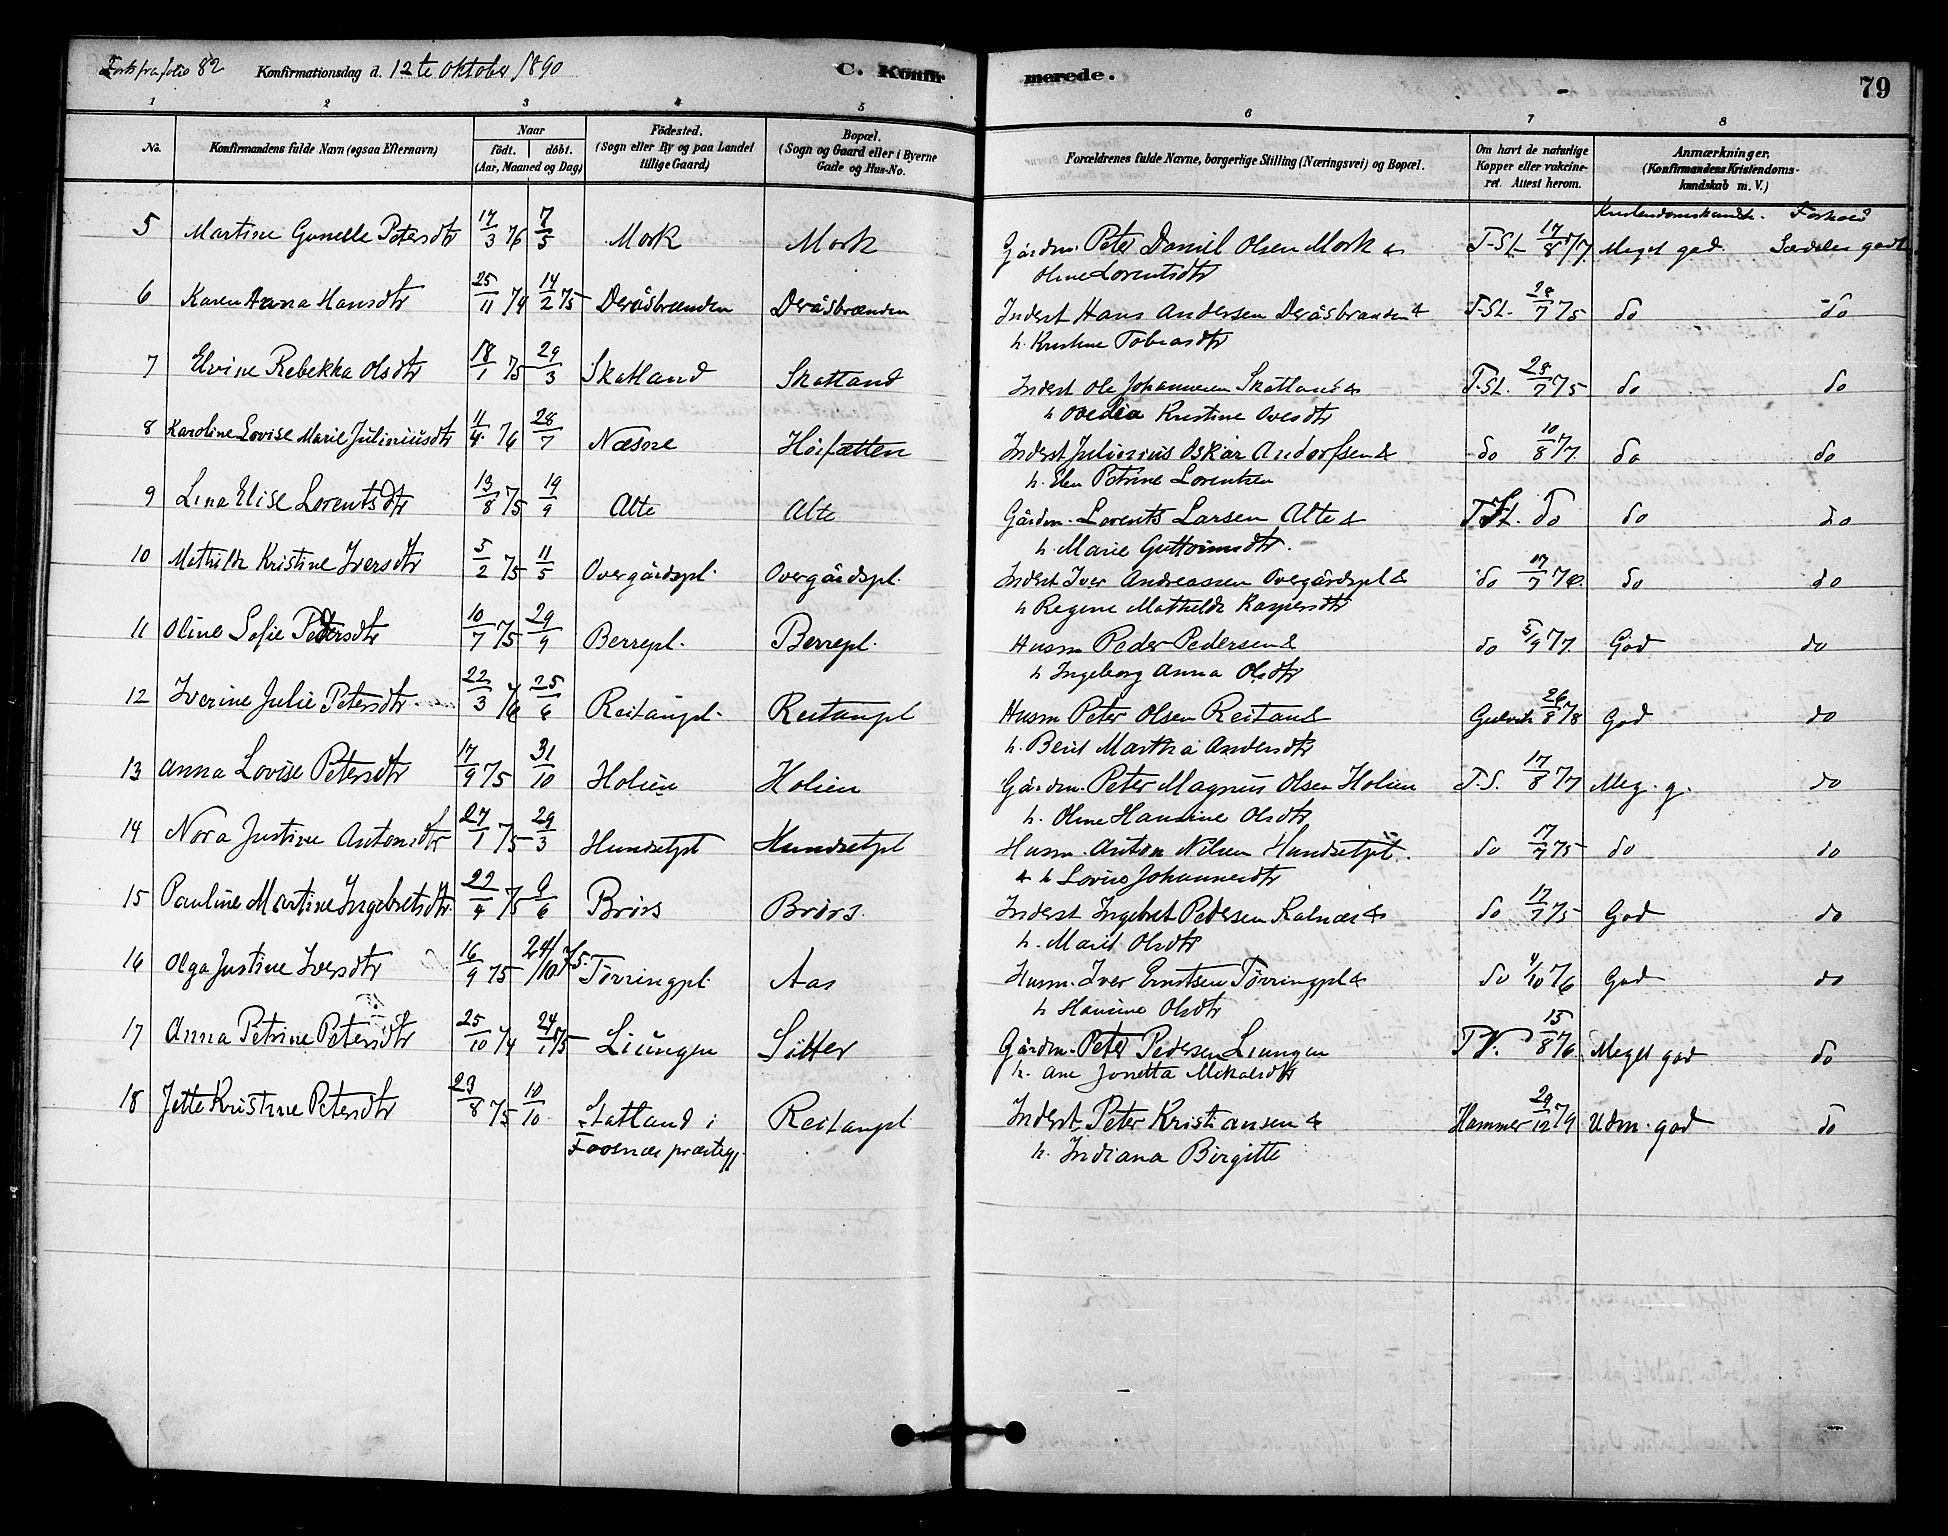 Forts fra folio 82 Konfirmationsdag d. 12te Oktober 1890 C. Konfirmerede. 79
1 2 3 4 5 6 7 8
No. Konfirmandens fulde Navn (ogsaa Efternavn) Naar födt. döbt. (Aar, Maaned og Dag) Födested. (Sogn eller By og paa Landet tillige Gaard) Bopæl. (Sogn og Gaard eller i Byerne Gade og Hus-No. Forældrenes fulde Navne, borgerlige Stilling (Næringsvei) og Bopæl. Om havt de naturlige Kopper eller vakcineret. Attest herom. Anmærkninger. (Konfirmandens Kristendomskundskab m. V.)
Kristendomskundsk. Forhold
5 Martine Gunelle Petersdtr 17/3 76 7/5 Mork Mork Gårdm. Peter Daniel Olsen Mork & T-St. 17/8 77 Meget god Særdeles godt
Oline Lorentsdtr
6 Karen Anna Hansdtr 25/11 74 14/2 75 Deråsbrænden Deråsbrænden Inderst Hans Andersen Deråsbrænden & T-St. 28/7 75 do do
h. Kristine Tobiasdtr
7 Elvine Rebekka Olsdtr 18/1 75 29/3 Skatland Skatland Inderst Ole Johannesen Skatland & T.St. 28/7 75 do do
h Ovedia Kristine Ovesdtr
8 Karoline Lovise Marie Juliniusdtr 11/4 76 28/7 Næsne Hoifætten Inderst Julinius Oskar Andorfsen & do 10/8 77 do do
h. Elen Petrine Lorentzen
9 Lina Elise Lorentsdtr 13/8 75 19/9 Alte Alte Gårdm. Lorents Larsen Alte & T.St. do do do
h. Marie Guttormsdtr.
10 Mathilde Kristine Iversdtr 5/2 75 11/5 Overgårdspl. Overgårdspl. Inderst Iver Andreassen Overgårdspl & do 17/7 76 do do
h Regine Mathilde Kaspersdtr
11 Oline Sofie Pedersdtr 10/7 75 29/9 Berrepl. Berrepl. Husm Peder Pedersen & do 5/9 77 God do
h Ingeborg Anna Olsdtr
12 Iverine Julie Petersdtr 22/3 76 25/6 Reitanpl. Reitanpl Husm Peter Olsen Reitan & 26/8 78 God do
h. Berit Martha Andersdtr
13 Anna Lovise Petersdtr 17/9 75 31/10 Holien Holien Gårdm. Peter Magnus Olsen Holien T.S. 17/8 77 Meg. g. do
h. Oline Hansine Olsdtr
14 Nora Justine Antonsdtr 27/1 75 29/3 Hundsetpl Hundsetpl Husm. Anton Nilsen Hundsetpl. do 17/7 75 do do
& h Lovise Johannesdtr
15 Pauline Martine Ingebretsdtr 22/4 75 9/6 Brørs Brørs Inderst Ingebret Pedersen Kalnæs & do 17/7 75 God do
h. Marit Olsdtr
16 Olga Justine Iversdtr 16/9 75 24/10 75 Tørringpl. Aas Husm. Iver Erntsen Tørringpl & do 4/10 76 God do
h Hansine Olsdtr
17 Anna Petrine Petersdtr 25/10 74 24/1 75 Liungen Sitter Gårdm. Peter Pedersen Liungen T.V. 15/8 76 Meget god do
h. Ane Jonetta Mikalsdtr
18 Jette Kristine Petersdtr 23/8 75 10/10 Statland i Reitanpl Inderst Peter Kristiansen & Hammer 29/12 79 Udm. god do
Foosnæs præstegj. h. Indiana Birgitte